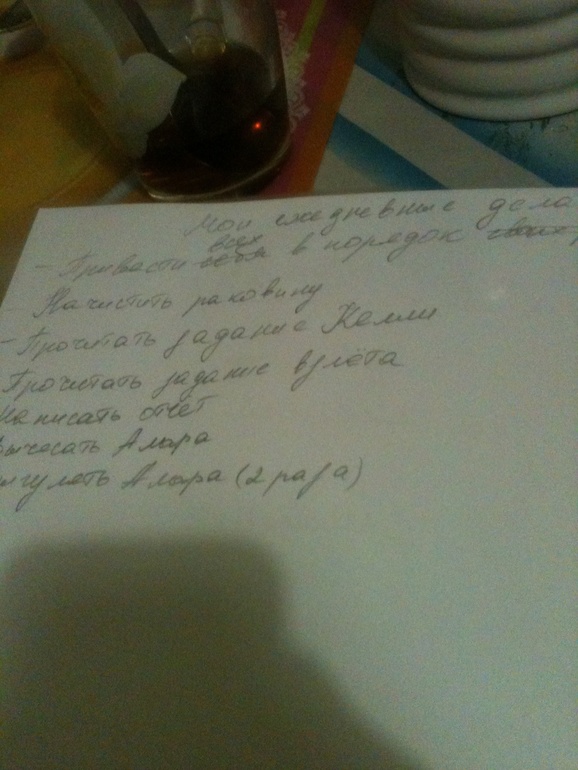 Мои ежедневные дела
всех
- Привести себя в порядок
- Начистить раковину
- Прочитать задание Келли
Прочитать задание взлёта
Написать отчет
вычесать Алара
выгулять Алара (2 раза)